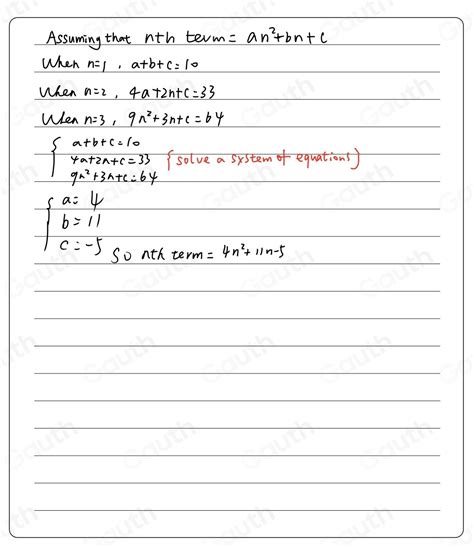 Assuming that nth term = an²+bn+c
When n=1, a+b+c=10
When n=2, 4a+2n+c=33
When n=3, 9n²+3n+c=64
a+b+c=10
4a+2n+c=33 {solve a system of equations}
9n²+3n+c=64
a=4
b=11
c=-5 So nth term = 4n²+11n-5
Gauth